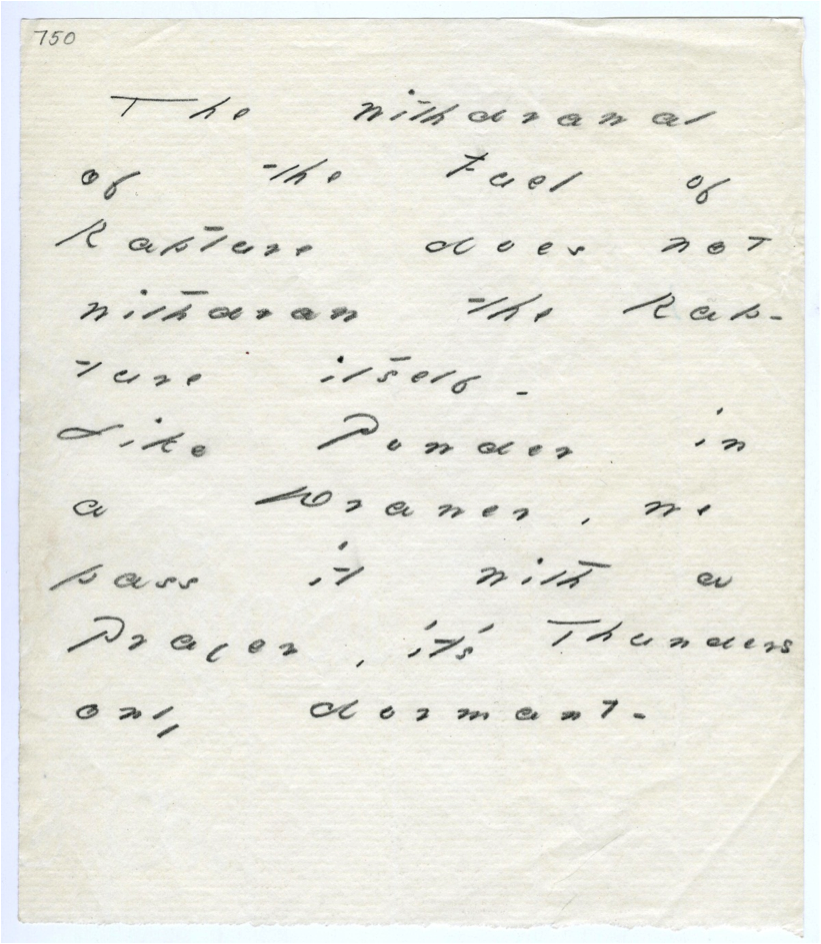 750
The withdrawal
of the Fuel of
Rapture does not
withdraw the Rap-
ture itself -
Like Powder in
a Drawer, we
pass it with a
Prayer, it's Thunders
only dormant -